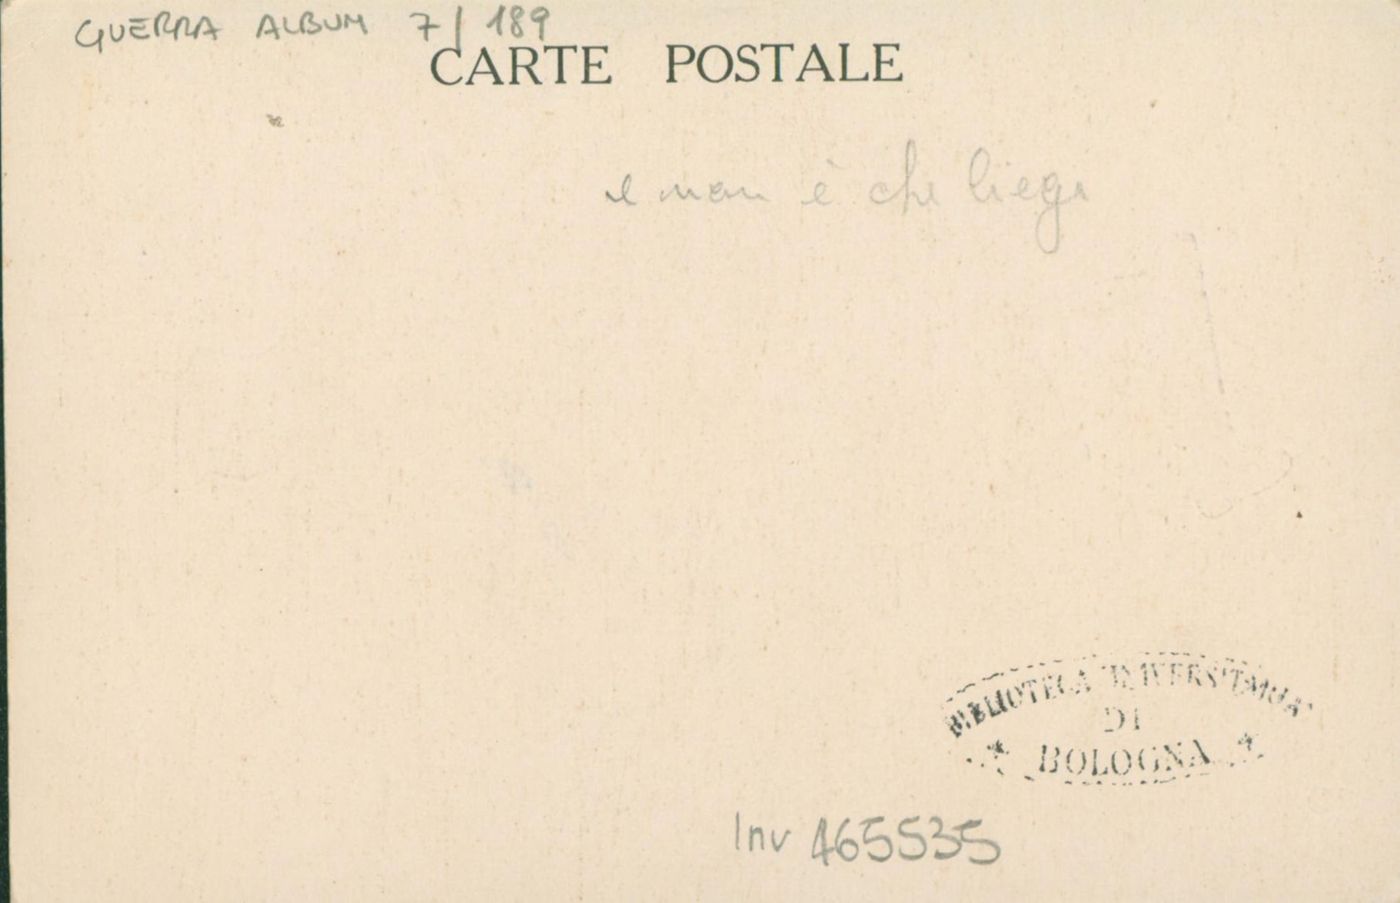 GUERRA ALBUM 7/189
CARTE POSTALE
e non è che liega
BIBLIOTECA UNIVERSITARIA
DI
BOLOGNA
Inv 465535